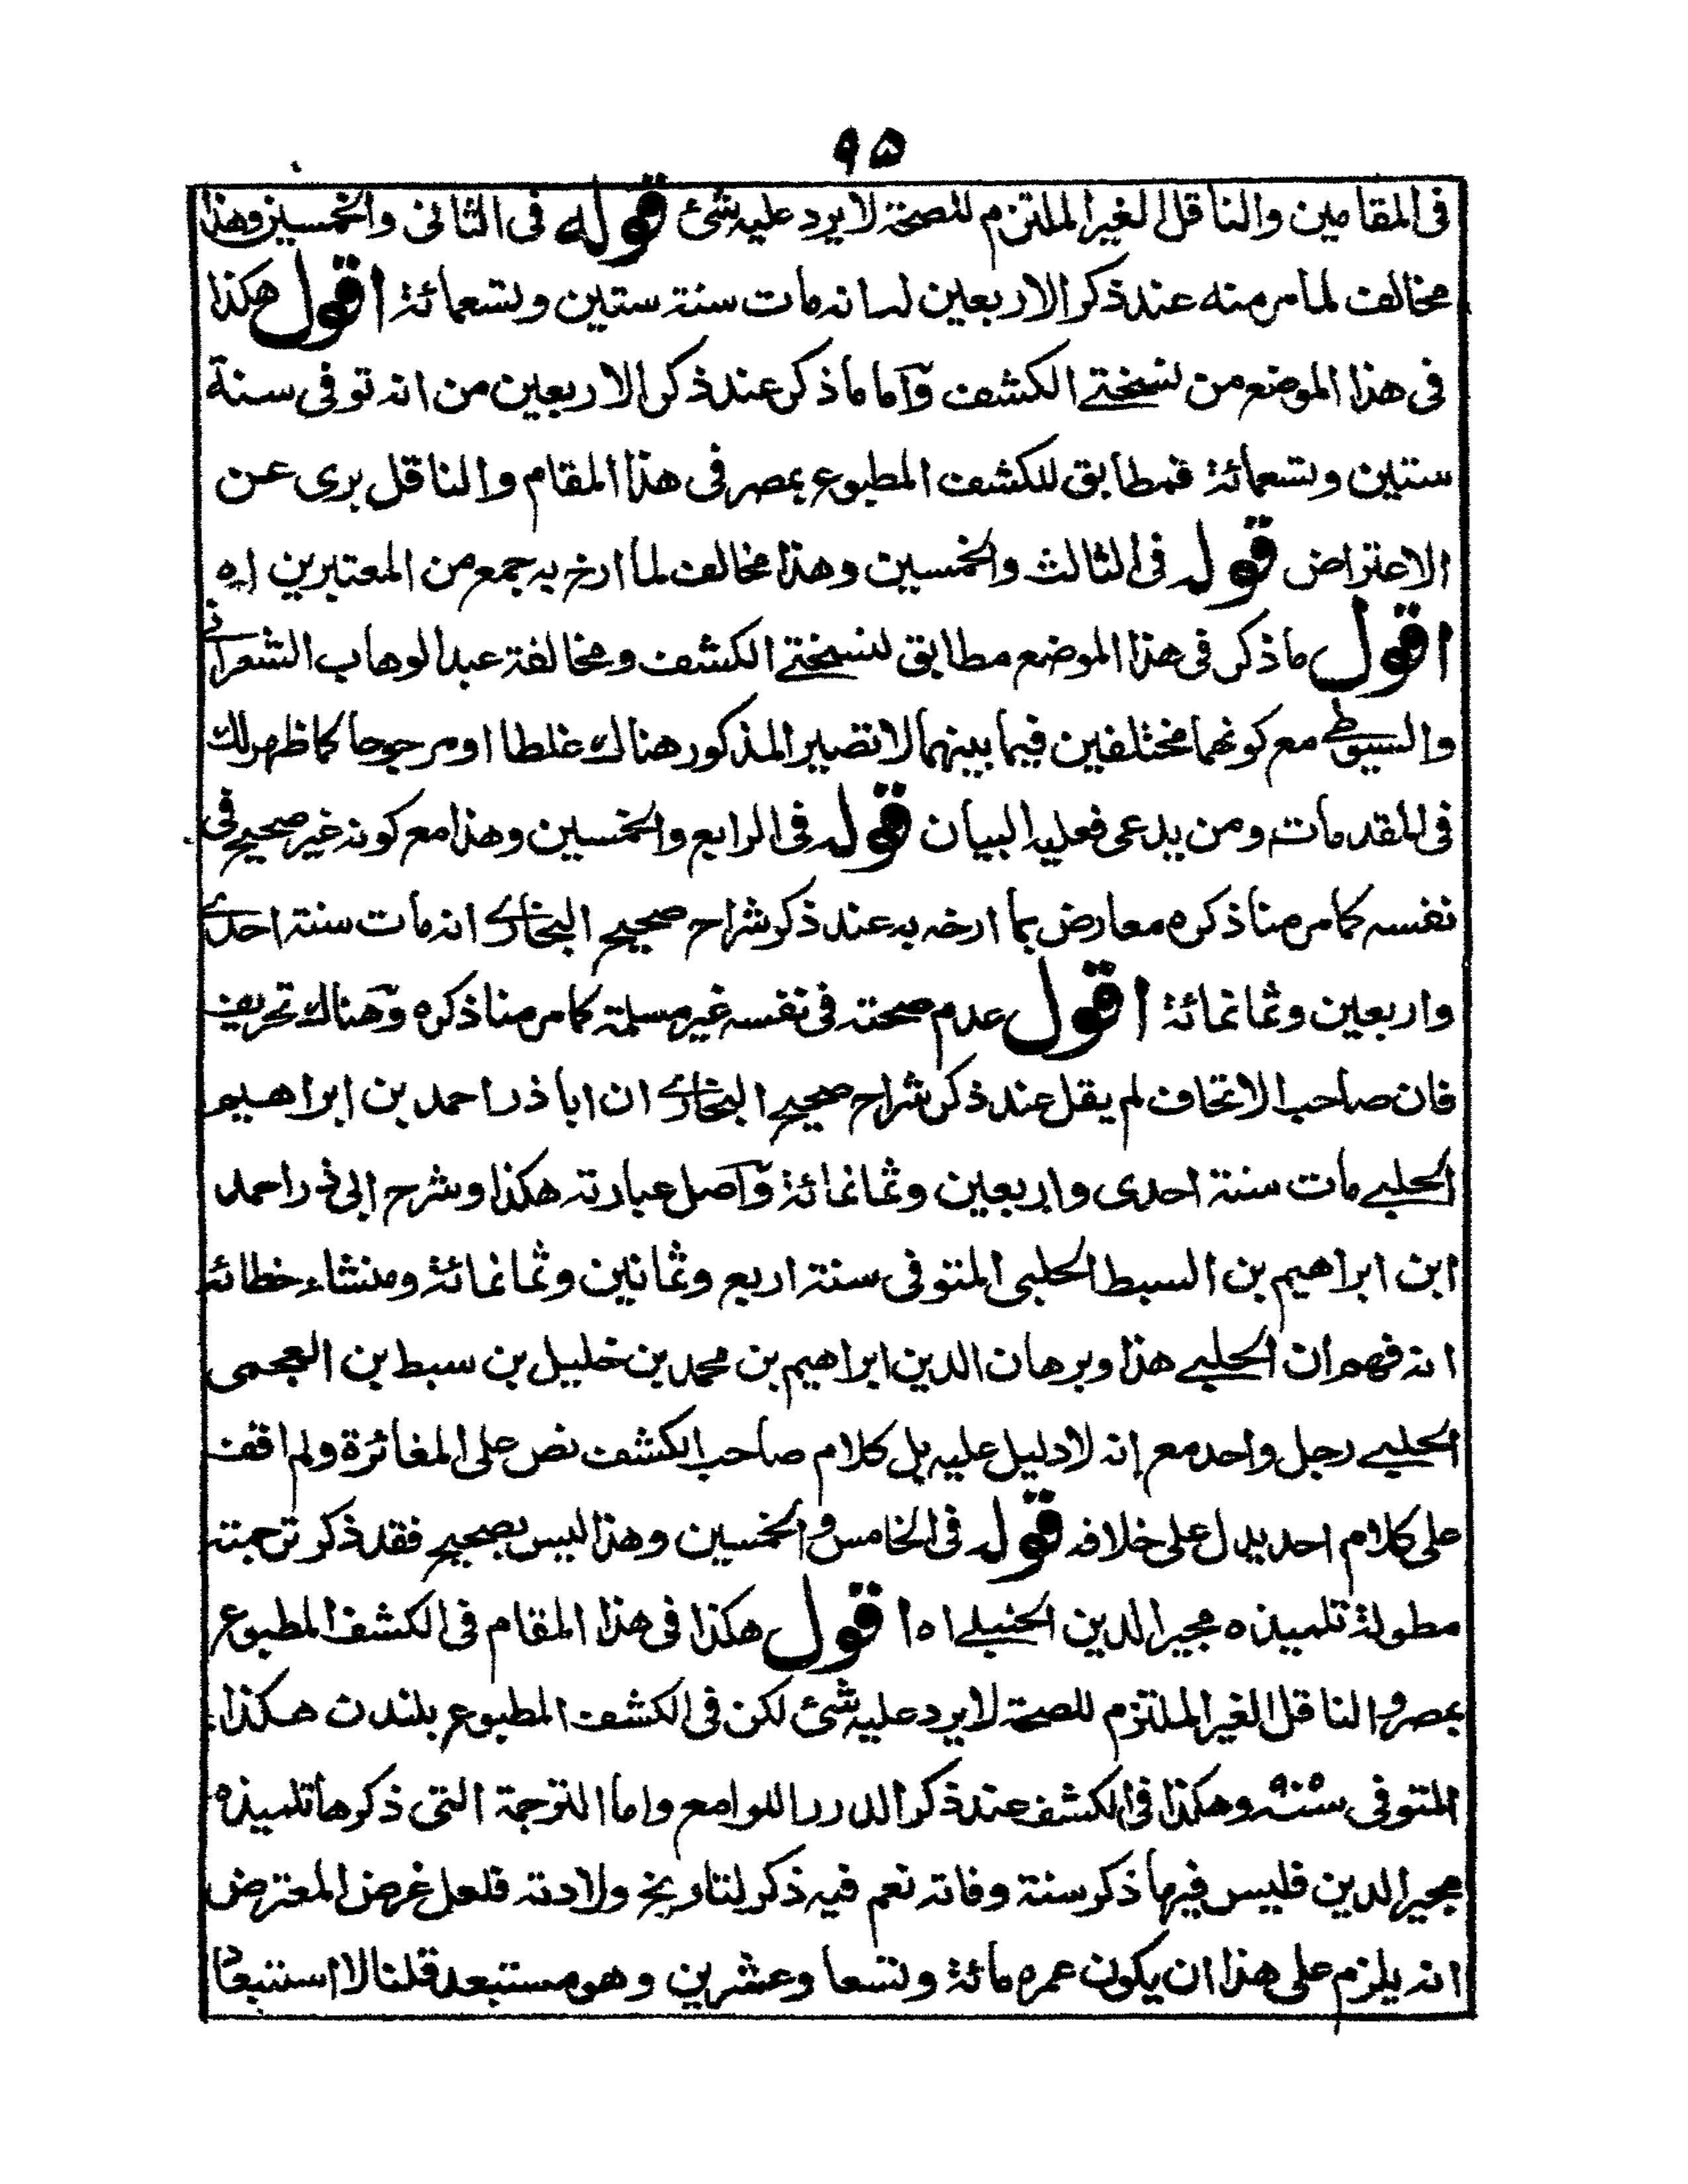 ٩٥
فى المقامين والناقل الغير الملتزم للصحة لا يرد عليه شئ قوله فى الثانى والخمسين وهذا
مخالف لما مر منه عند ذكر الاربعين له انه مات سنة ستين وتسعمائة اقول هكذا
فى هذا الموضع من نسختے الكشف وآما ما ذكر عند ذكر الاربعين من انه توفى سنة
ستين وتسعمائة فمطابق للكشف المطبوع بمصر فى هذا المقام والناقل برى عن
الاعتراض قوله فى الثالث والخمسين وهذا مخالف لما ارخ به جمع من المعتبرين اه
اقول ما ذكر فى هذا الموضع مطابق لنسختے الكشف ومخالفة عبد الوهاب الشعرانے
والسيوطے مع كونهما مختلفين فيما بينهما لا تصير المذكور هناك غلطا او مرجوحا كما ظهر لك
فى المقدمات ومن يدعى فعليه البيان قوله فى الرابع والخمسين وهذا مع كونه غير صحيح فى
نفسه كما مر منا ذكره معارض بما ارخه به عند ذكر شراح صحيح البخارے انه مات سنة احدے
واربعين وثمانمائة اقول عدم صحته فى نفسه غير مسلمة كما مر منا ذكره وهناك تحريف
فان صاحب الاتحاف لم يقل عند ذكر شراح صحيح البخارے ان ابا ذر احمد بن ابراهيم
الحلبے مات سنة احدى واربعين وثمانمائة وآصل عبارته هكذا وشرح ابى ذر احمد
ابن ابراهيم بن السبط الحلبى المتوفى سنة اربع وثمانين وثمانمائة ومنشاء خطائه
انه فهم ان الحلبے هذا وبرهان الدين ابراهيم بن محمد بن خليل بن سبط بن العجمى
الحلبے رجل واحد مع إنه لا دليل عليه بل كلام صاحب الكشف نص على المغائرة ولم اقف
على كلام احد يدل على خلافه قوله فى الخامس والخمسين وهذا ليس بصحيح فقد ذكر ترجمته
مطولة تلميذه مجير الدين الحنبلے اه اقول هكذا فى هذا المقام فى الكشف المطبوع
بمصر والناقل الغير الملتزم للصحة لا يرد عليه شئ لكن فى الكشف المطبوع بلندن هكذا
المتوفى سنة وهكذا فى الكشف عند ذكر الدرر اللوامع واما الترجمة التى ذكرها تلميذه
مجير الدين فليس فيها ذكر سنة وفاته نعم فيه ذكر لتاريخ ولادته فلعل غرض المعترض
انه يلزم على هذا ان يكون عمره مائة وتسعا وعشرين وهو مستبعد قلنا لا استبعاد